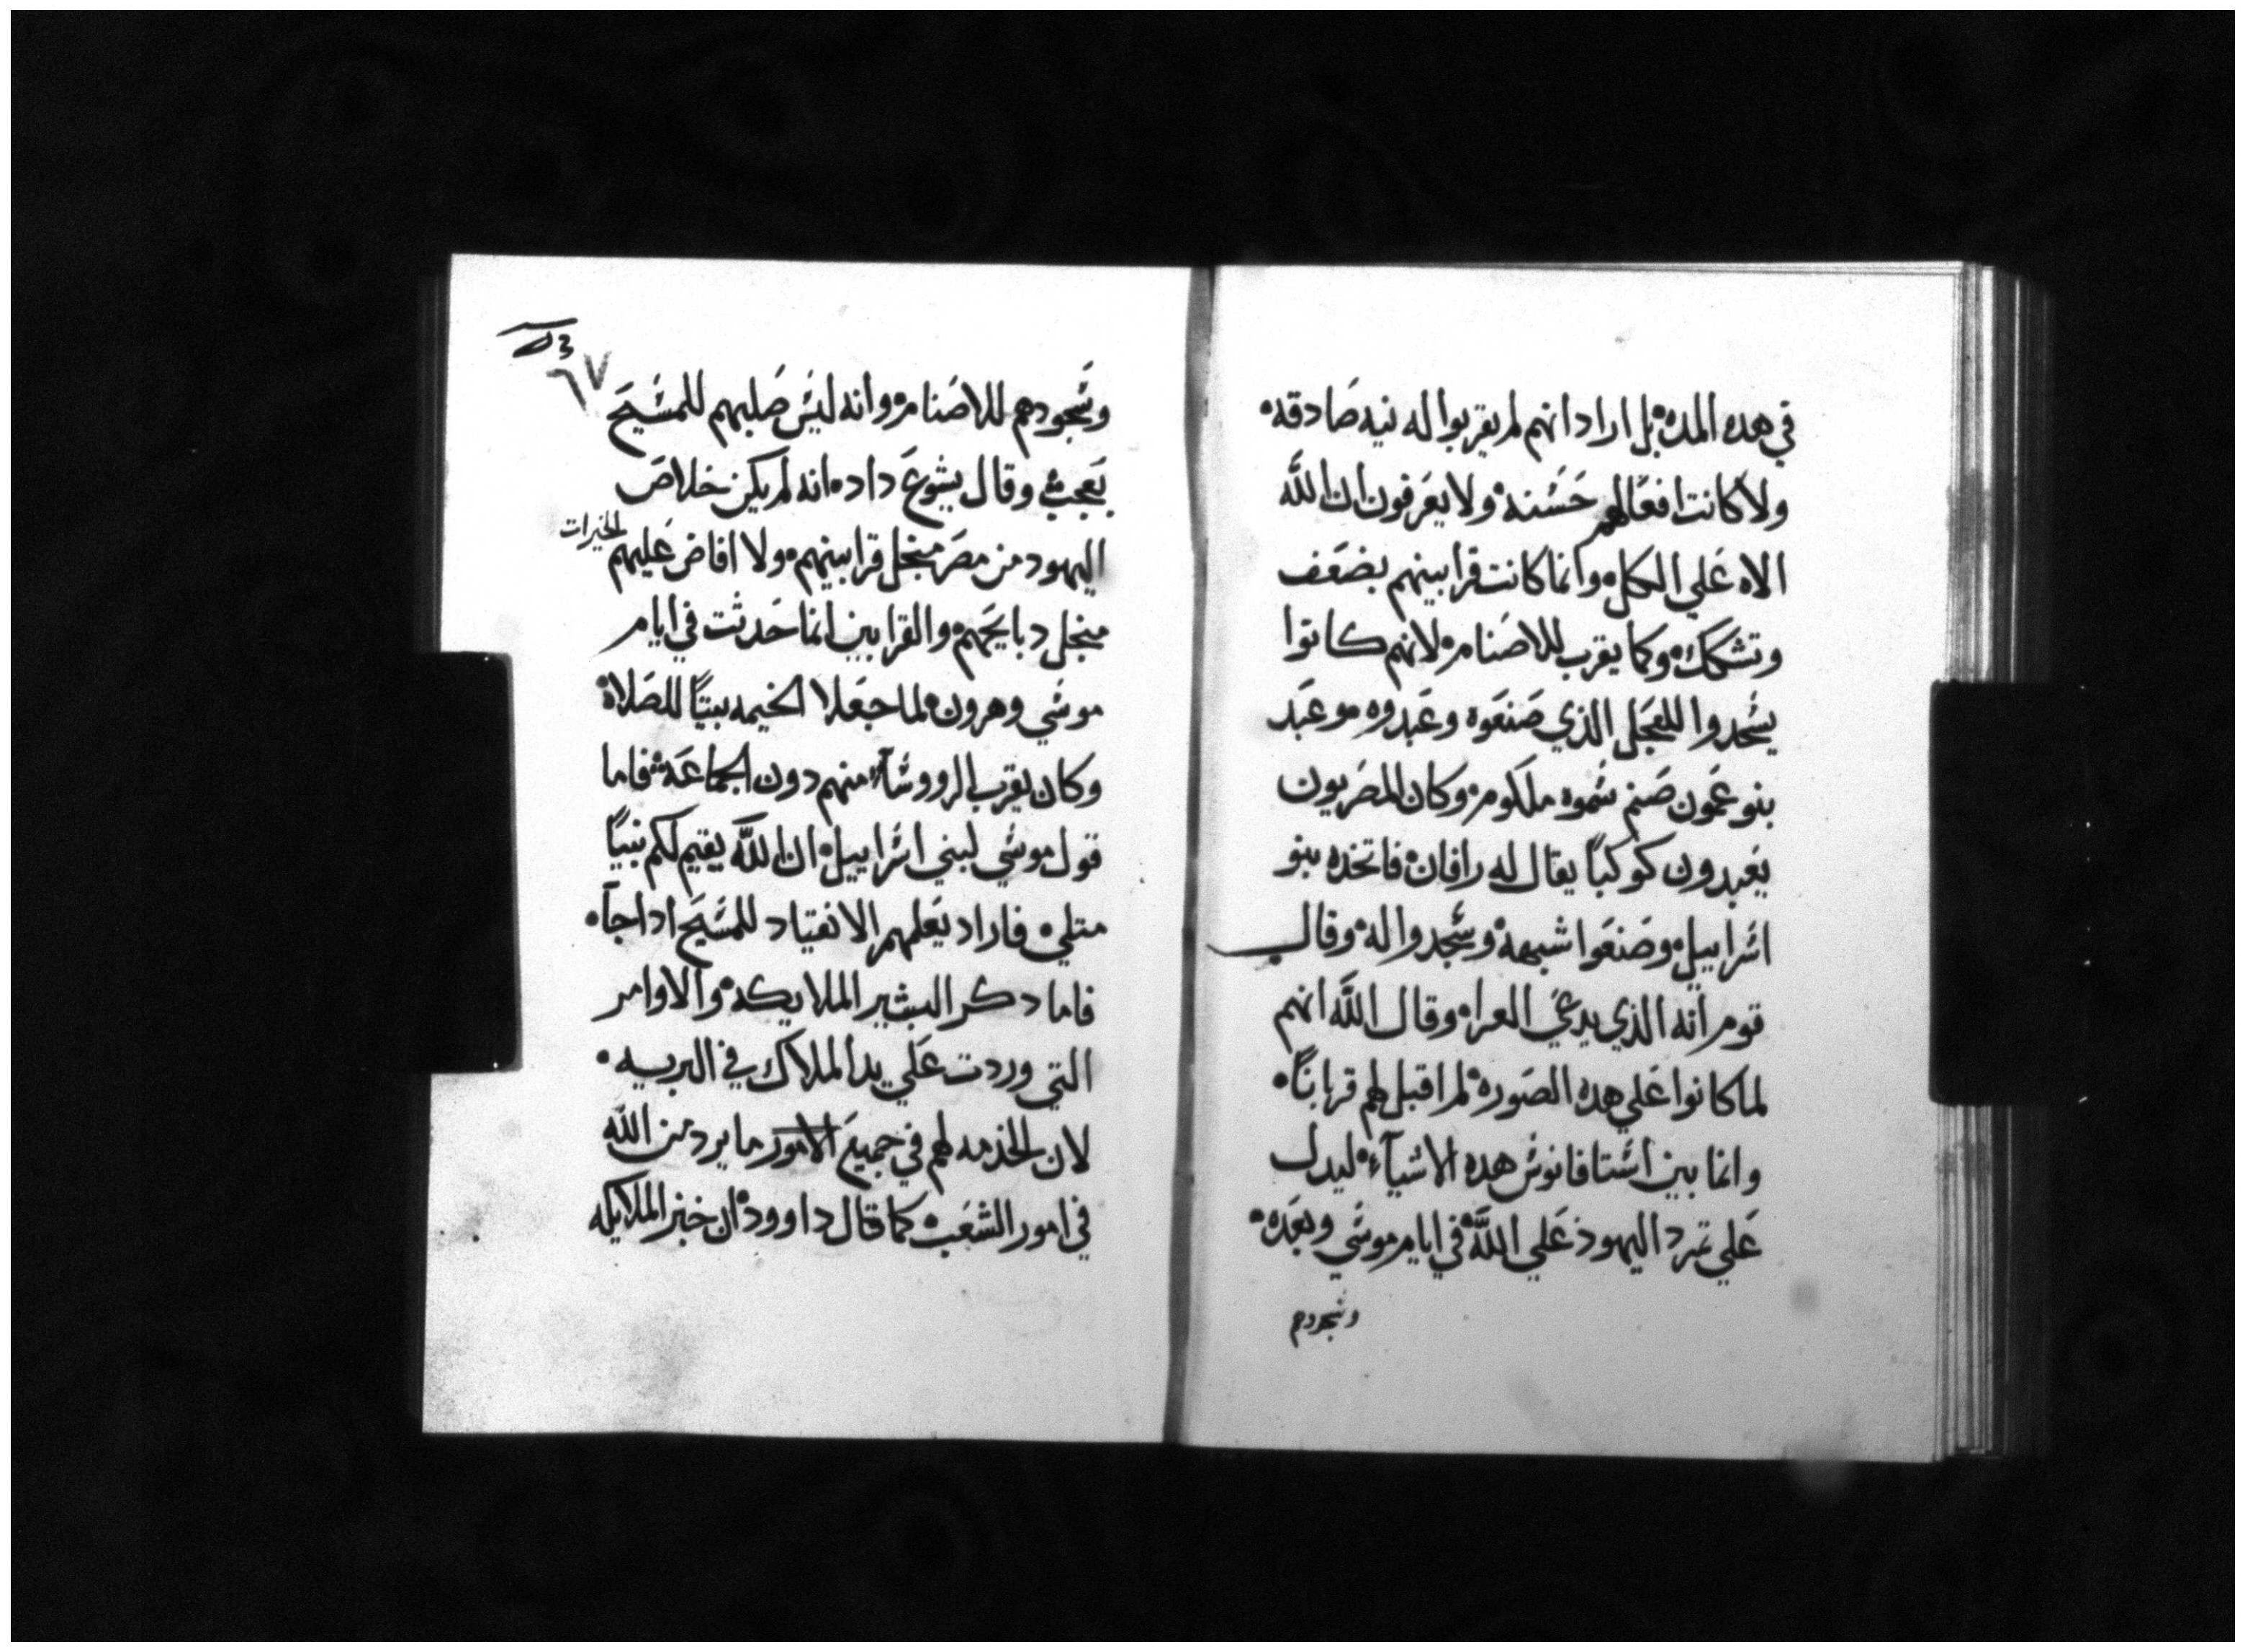 في هده المده بل اراد انهم لم يقربوا له نيه صادقه
ولا كانت افعالهم حسنه ولا يعرفون ان الله
الاه علي الكل وانما كانت قرابينهم بضعف
وتشكك وكما يقرب للاصنام لانهم كانوا
يسجدوا للعجل الذي صنعوه وعبدوه مو عبد
بنو عمون صنم سموه ملكوم وكان المصريون
يعبدون كوكبًا يقال له رافان فاتخده بنو
اسراييل وصنعوا شبهه وسجدوا له وقال
قوم انه الذي يدعي العراه وقال الله انهم
لما كانوا علي هده الصوره لم اقبل لهم قربانًا
وانما بين استافانوس هده الاشيآء ليدل
علي تمرد اليهود علي الله في ايام موسي وبعده
وسجودهم
٦٧
وسجودهم للاصنام وانه ليس صلبهم للمسيح
بعجب وقال يشوع داد انه لم يكن خلاص
اليهود من مصر منجل قرابينهم ولا افاض عليهم الخيرات
منجل دبايحهم والقرابين انما حدثت في ايام
موسي وهرون لما جعلا الخيمه بيتًا للصلاة
وكان يقرب الرووسآء منهم دون الجماعة فاما
قول موسي لبني اسراييل ان الله يقيم لكم نبيًا
متلي فاراد يعلمهم الانقياد للمسيح ادا جآ
فاما دكر البشير الملايكه والاوامر
التي وردت علي يد الملاك في البريه
لان الخدمه لهم في جميع الامور ما يرد من الله
في امور الشعب كما قال داوود ان خبز الملايكه